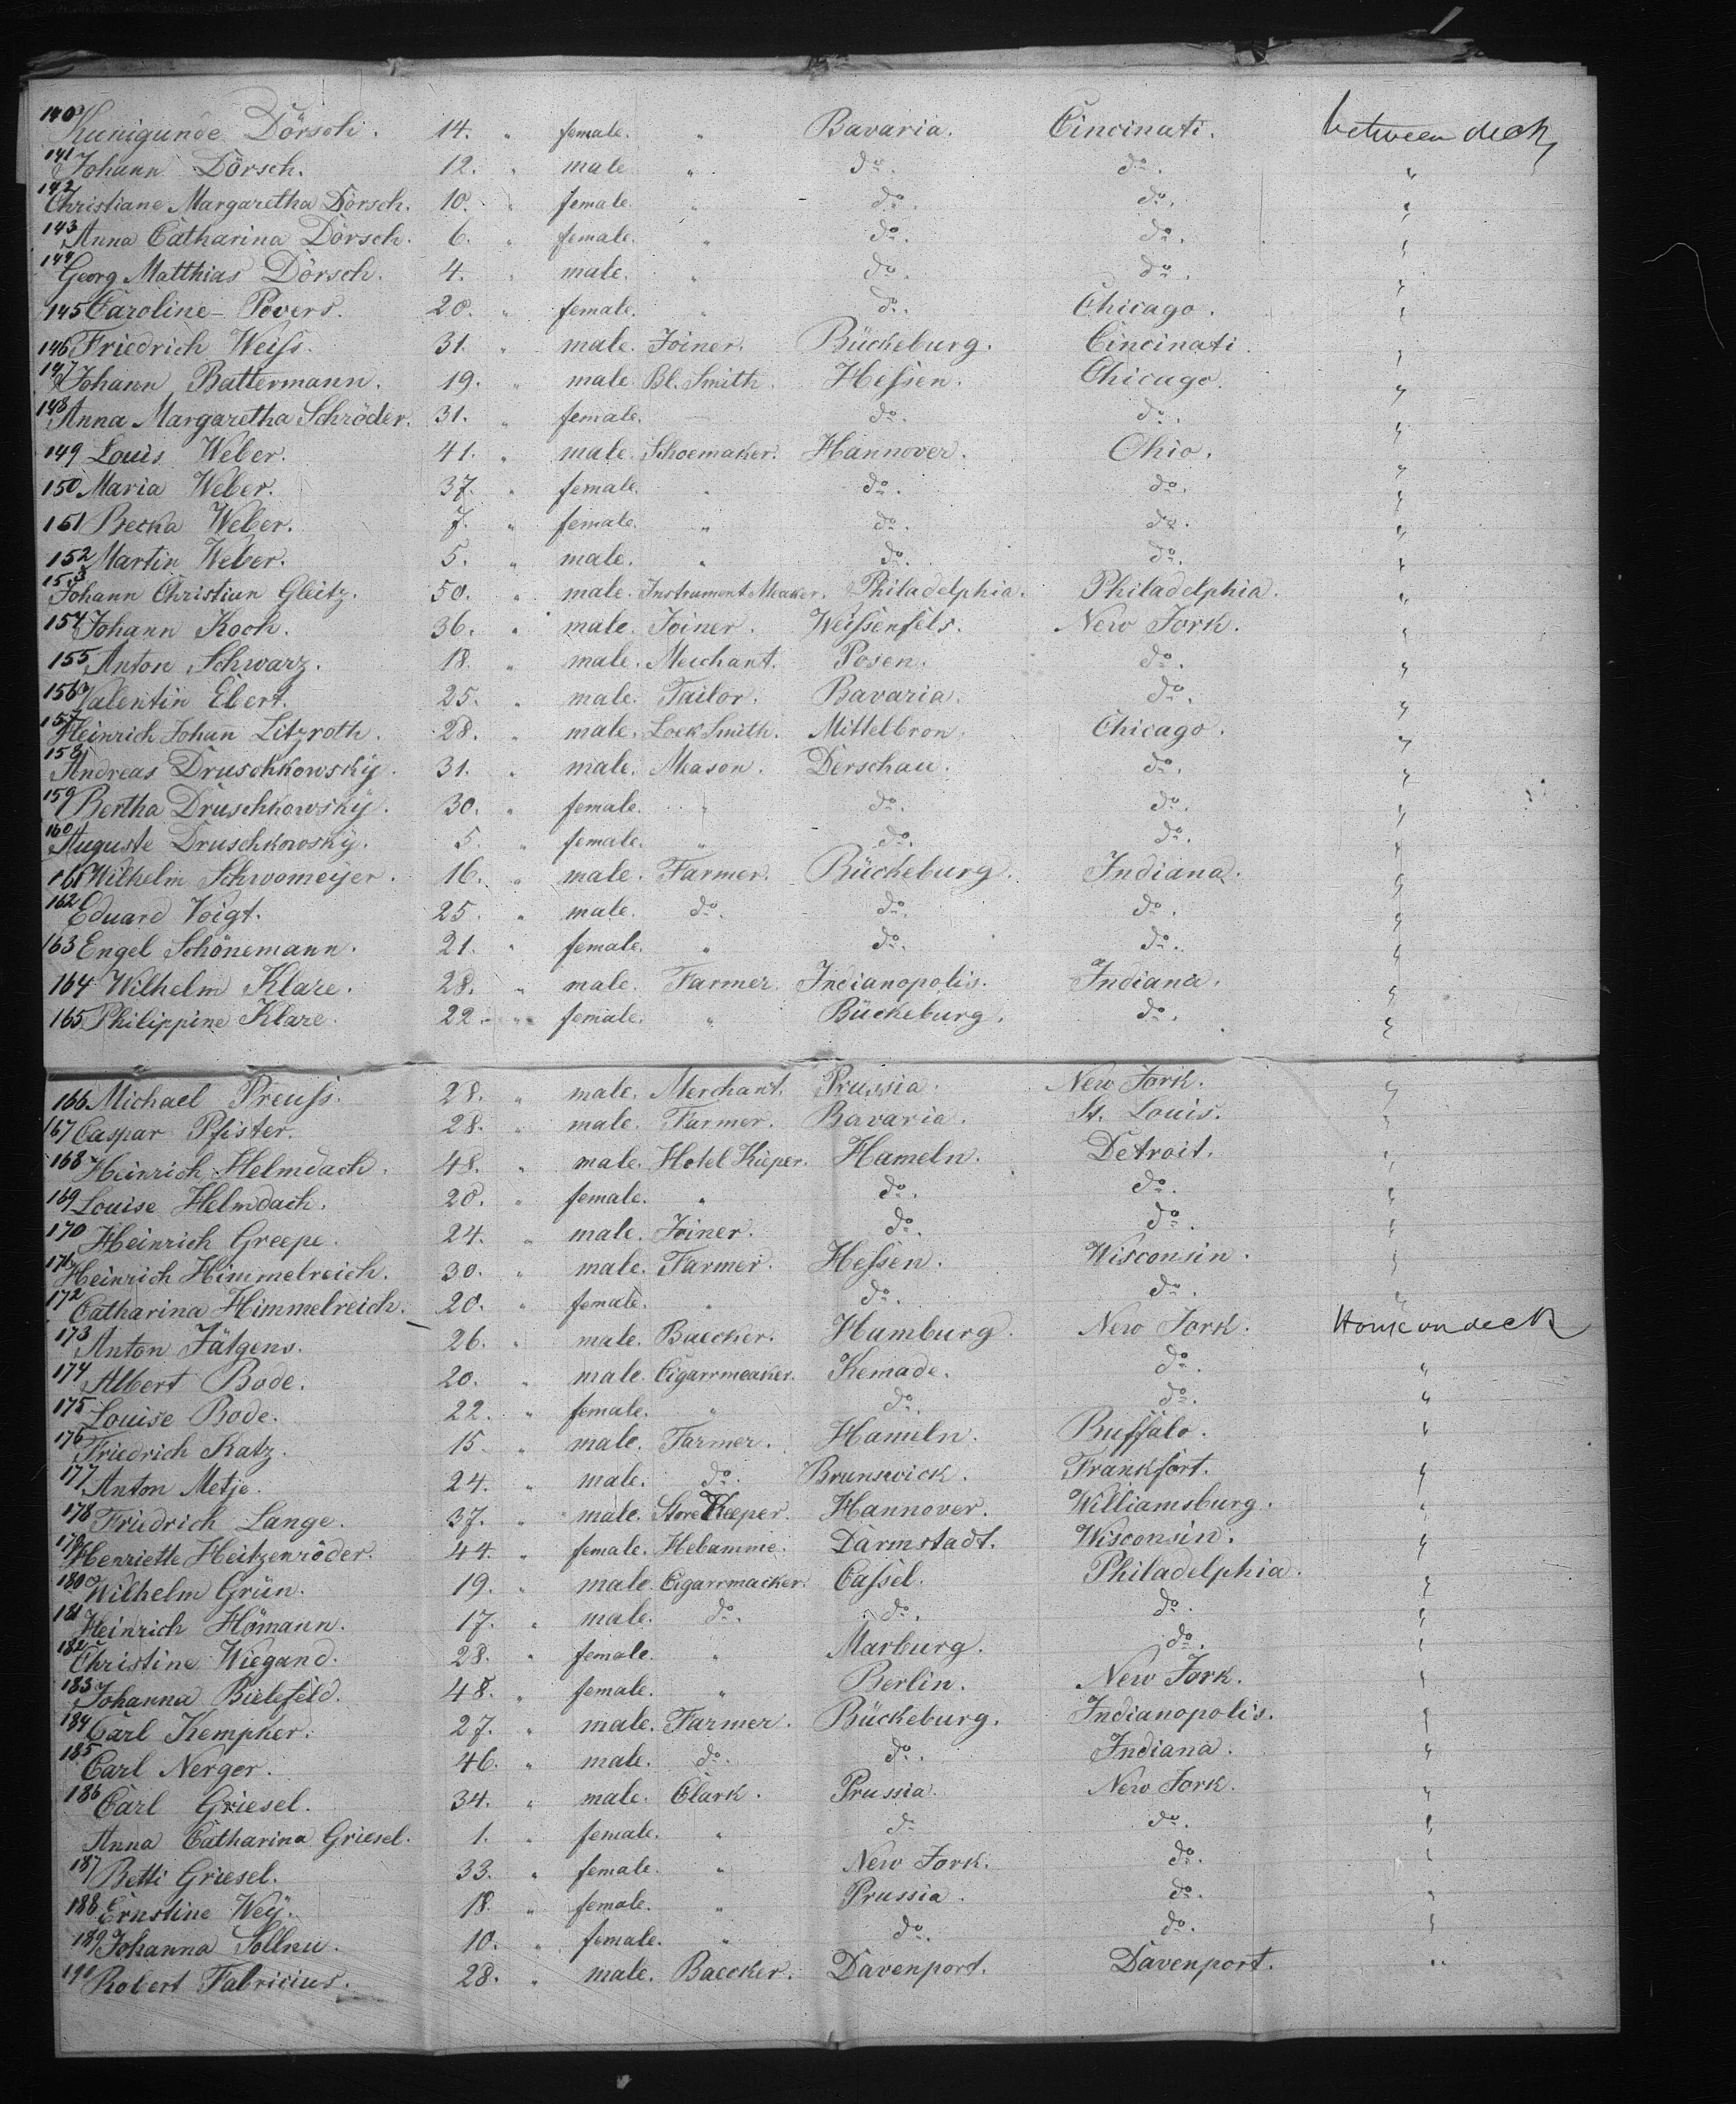 140 Kunigunde Dörsch. 14. " female. " Bavaria. Cincinati. between deck
141 Johann Dörsch. 12. " male " do. do. "
142 Christiane Margaretha Dörsch. 10. " female. " do. do. "
143 Anna Catharina Dörsch. 6. " female. " do. do. "
144 Georg Matthias Dörsch. 4. " male. " do. do. "
145 Caroline Povers. 20. " female. " do. Chicago. "
146 Friedrich Weiss. 31. " male. Joiner. Bückeburg. Cincinati. "
147 Johann Battermann. 19. " male. Bl. Smith. Hessen. Chicago. "
148 Anna Margaretha Schröder. 31. " female. do. do. "
149 Louis Weber. 41. " male. Schoemaker. Hannover. Ohio. "
150 Maria Weber. 37. " female. " do. do. "
151 Becka Weber. 7. " female. " do. do. "
152 Martin Weber. 5. " male. " do. do. "
153 Johann Christian Gleitz. 50. " male. Instrument Meaker. Philadelphia. Philadelphia. "
154 Johann Koch. 36. " male. Joiner. Weissenfels. New York. "
155 Anton Schwarz. 18. " male. Merchant. Posen. do. "
156 Valentin Ebert. 25. " male. Tailor. Bavaria. do. "
157 Heinrich Johann Litzroth. 28. " male. Lock Smith. Mittelbron. Chicago. "
158 Andreas Druschkowsky. 31. " male. Meason. Derschau. do. "
159 Bertha Druschkowsky. 30. " female. " do. do. "
160 Auguste Druschkowsky. 5. " female. " do. do. "
161 Wilhelm Schwomeijer. 16. " male. Farmer. Bückeburg. Indiana. "
162 Eduard Voigt. 25. " male. do. do. do. "
163 Engel Schönemann. 21. " female. " do. do. "
164 Wilhelm Klare. 28. " male. Farmer. Indianopolis. Indiana. "
165 Philippine Klare. 22. " female. " Bückeburg. do. "
166 Michael Preuss. 28. " male. Merchant. Prussia. New York. "
167 Caspar Pfister. 28. " male. Farmer. Bavaria. St. Louis. "
168 Heinrich Helmdach. 48. " male. Hotel Kieper. Hameln. Detroit. "
169 Louise Helmdach. 20. " female. " do. do. "
170 Heinrich Greepe. 24. " male. Joiner. do. do. "
171 Heinrich Himmelreich. 30. " male. Farmer. Hessen. Wisconsin. "
172 Catharina Himmelreich. 20. " female. " do. do. "
173 Anton Jütgens. 26. " male. Baecker. Hamburg. New York. House on deck
174 Albert Bode. 20. " male. Cigarrmeaker. Kemade. do. "
175 Louise Bode. 22. " female. " do. do. "
176 Friedrich Katz. 15. " male. Farmer. Hameln. Buffalo. "
177 Anton Metje. 24. " male. do. Brunswick. Frankfort. "
178 Friedrich Lange. 37. " male. Store Keeper. Hannover. Williamsburg. "
179 Henriette Heitzenröder. 44. " female. Hebamme. Darmstadt. Wisconsin. "
180 Wilhelm Grün. 19. " male. Cigarrmacker. Cassel. Philadelphia. "
181 Heinrich Hömann. 17. " male. do. do. do. "
182 Christine Wiegand. 28. " female. " Marburg. do. "
183 Johanna Bielefeld. 48. " female. " Berlin. New York. "
184 Carl Kempker. 27. " male. Farmer. Bückeburg. Indianopolis. "
185 Carl Nerger. 46. " male. do. do. Indiana. "
186 Carl Griesel. 34. " male. Clark. Prussia. New York. "
Anna Catharina Griesel. 1. " female. " do do. "
187 Betti Griesel. 33. " female. " New York. do. "
188 Ernstine Wey. 18. " female. " Prussia. do. "
189 Johanna Sollnu. 10. " female. " do. do. "
190 Robert Fabricius. 28. " male. Baecker. Davenport. Davenport. "